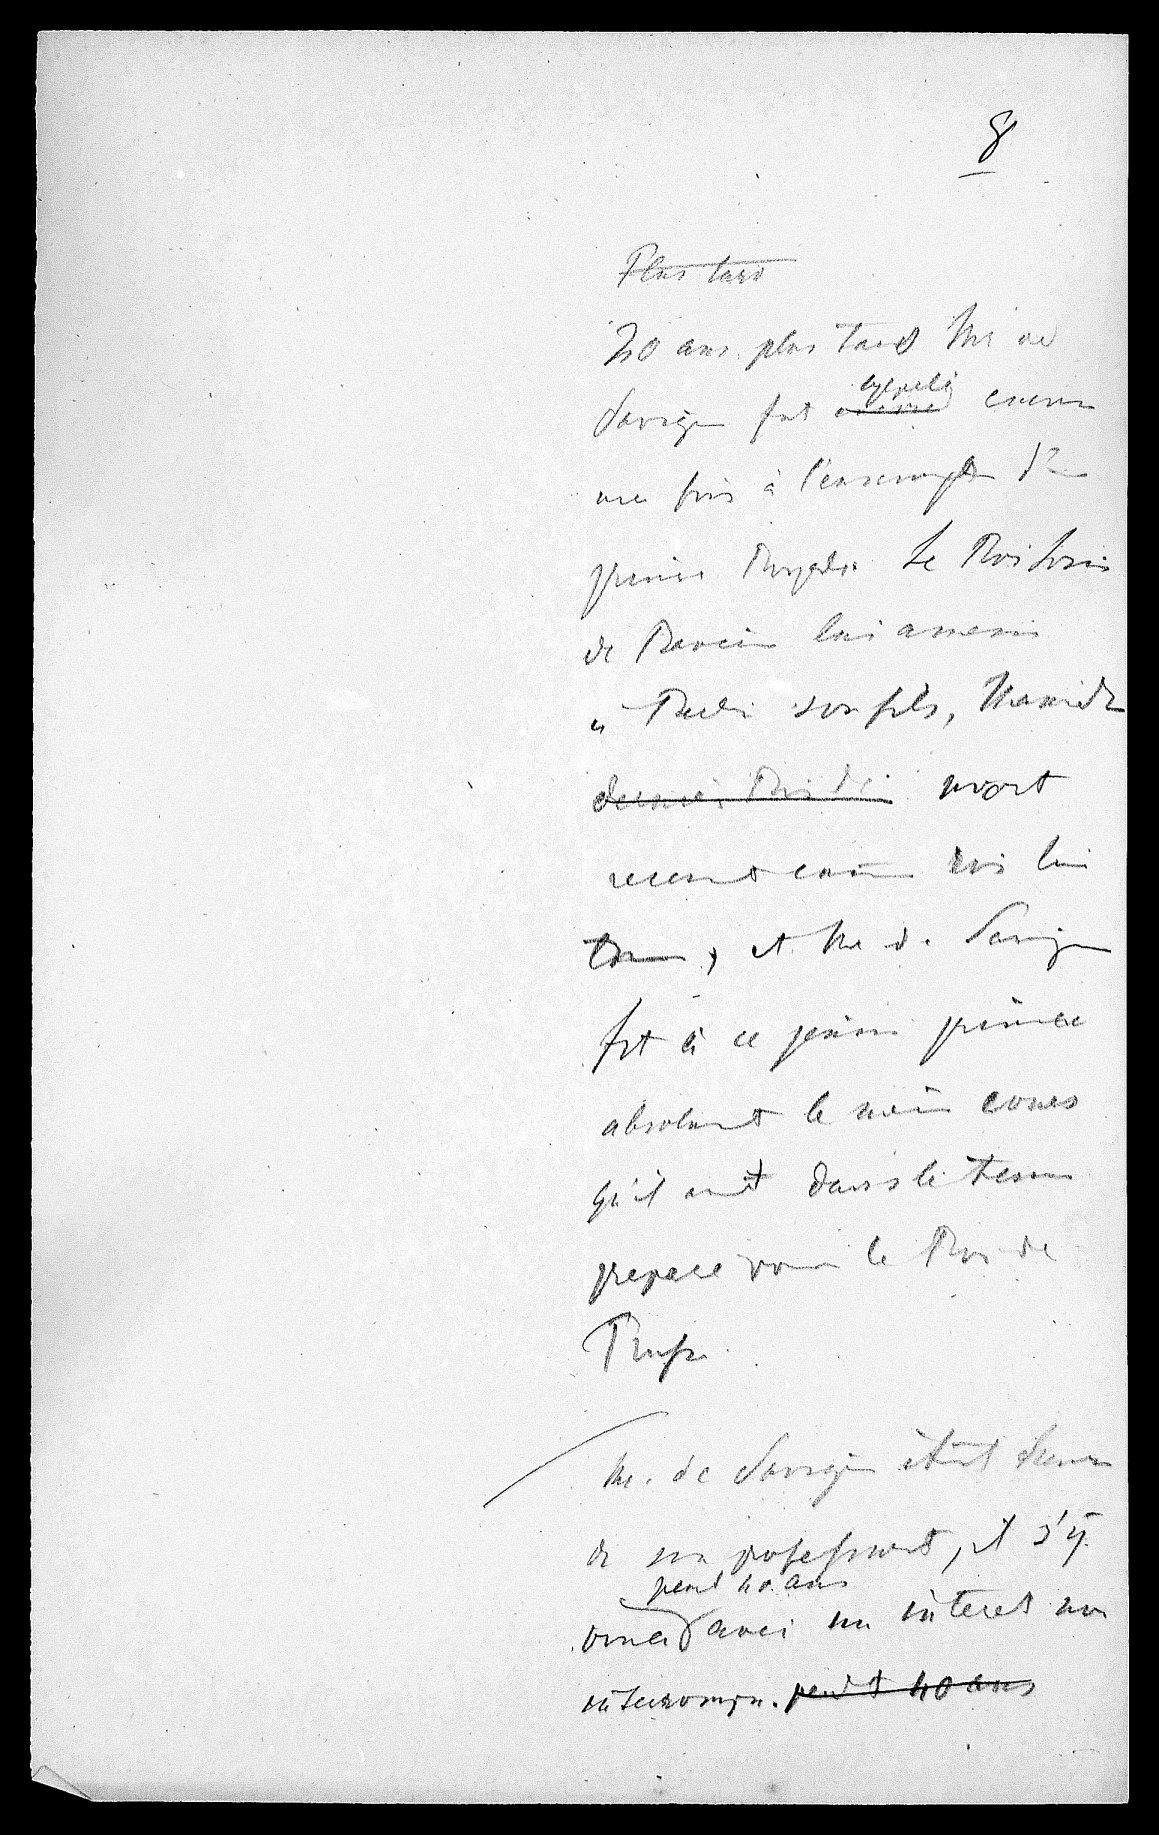 8
Plus tard
20 ans plus tard Mr de
Savigny fut appelé encore
une fois à l'enseignement d'un
prince Royal. Le Roi Louis
de Baviere lui amena
à Berlin son fils, Maximilien
dernier Roi de mort
recemment comme roi lui
, et Mr d. Savigny
fit à ce jeune prince
absolument le même cours
qu'il avait dans le tems
preparé pour le Roi de
Prusse.
Mr. de Savigny était
de son professorat, et s'y
pendt 40 ans
voua avec un interet non
interrompu. pendt 40 ans